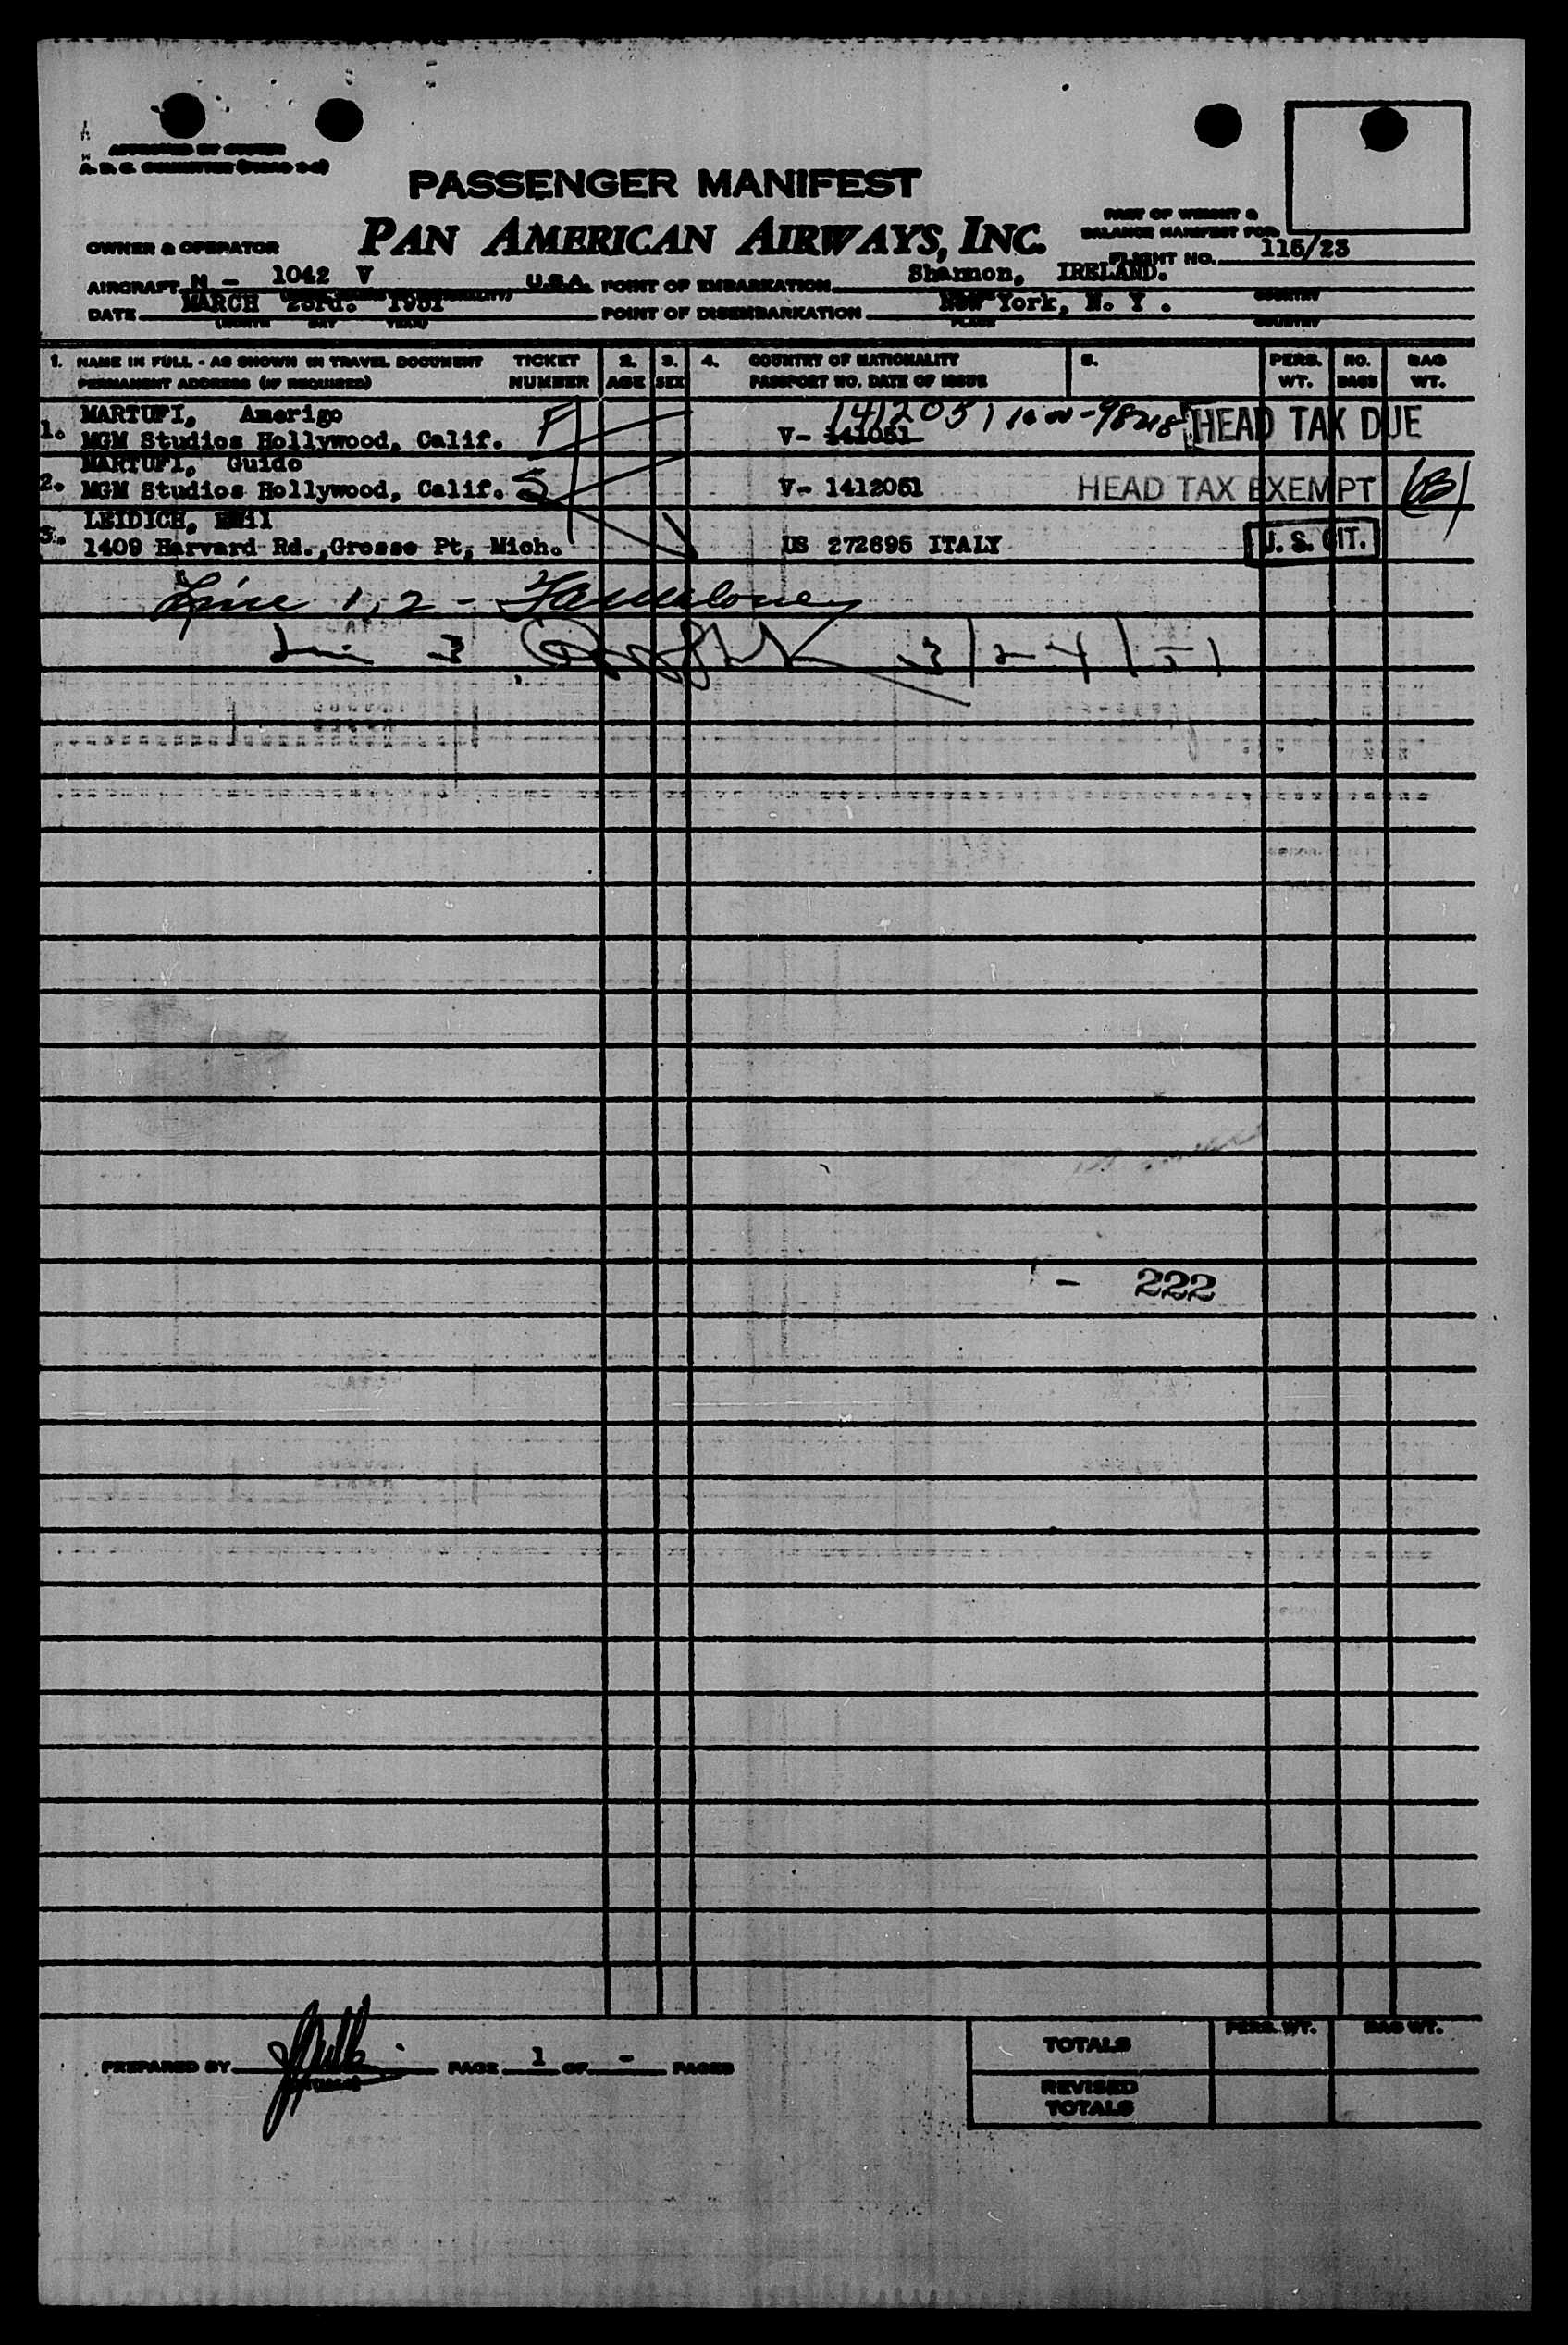 APPROVED BY
A. D. C. COMMITTEE
PASSENGER MANIFEST
PAN AMERICAN AIRWAYS, INC.
PART OF WEIGHT &
BALANCE MANIFEST FOR
OWNER & OPERATOR
FLIGHT NO. 115/23
AIRCRAFT N - 1042 V U.S.A. POINT OF EMBARKATION Shannon, IRELAND.
DATE MARCH 23rd. 1951 POINT OF DISEMBARKATION New York, N. Y .
(MONTH DAY YEAR) PLACE COUNTRY
1. NAME IN FULL - AS SHOWN IN TRAVEL DOCUMENT TICKET 2. 3. 4. COUNTRY OF NATIONALITY 5. PERS. NO. BAG
PERMANENT ADDRESS (IF REQUIRED) NUMBER AGE SEX PASSPORT NO. DATE OF ISSUE WT. BAGS WT.
MARTUFI, Amerigo 1412051 HEAD TAX DUE
1. MGM Studios Hollywood, Calif. V- 141051
MARTUFI, Guido
2. MGM Studios Hollywood, Calif. 5 V- 1412051 HEAD TAX EXEMPT
LEIDICH, Emil
3. 1409 Harvard Rd.,Grosse Pt, Mich. US 272695 ITALY U. S. CIT.
Line 1, 2 -
Line 3 3/24/51
- 222
PREPARED BY PAGE 1 OF - PAGES
TOTALS PERS. WT. BAG WT.
REVISED
TOTALS